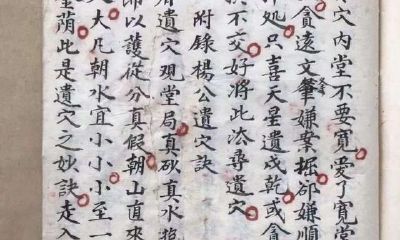 穴内堂不要寬愛了寬堂
貪遠文筆峯嫌案掘卻嫌順
处只喜天星遺戌乾或貪
不交好將此法尋遺穴
附錄楊公遺穴訣
遺穴观堂局真砂真水抱
以護從分真假朝山直來
大凡朝水宜小小小至一
荫此是遺穴之妙訣走入